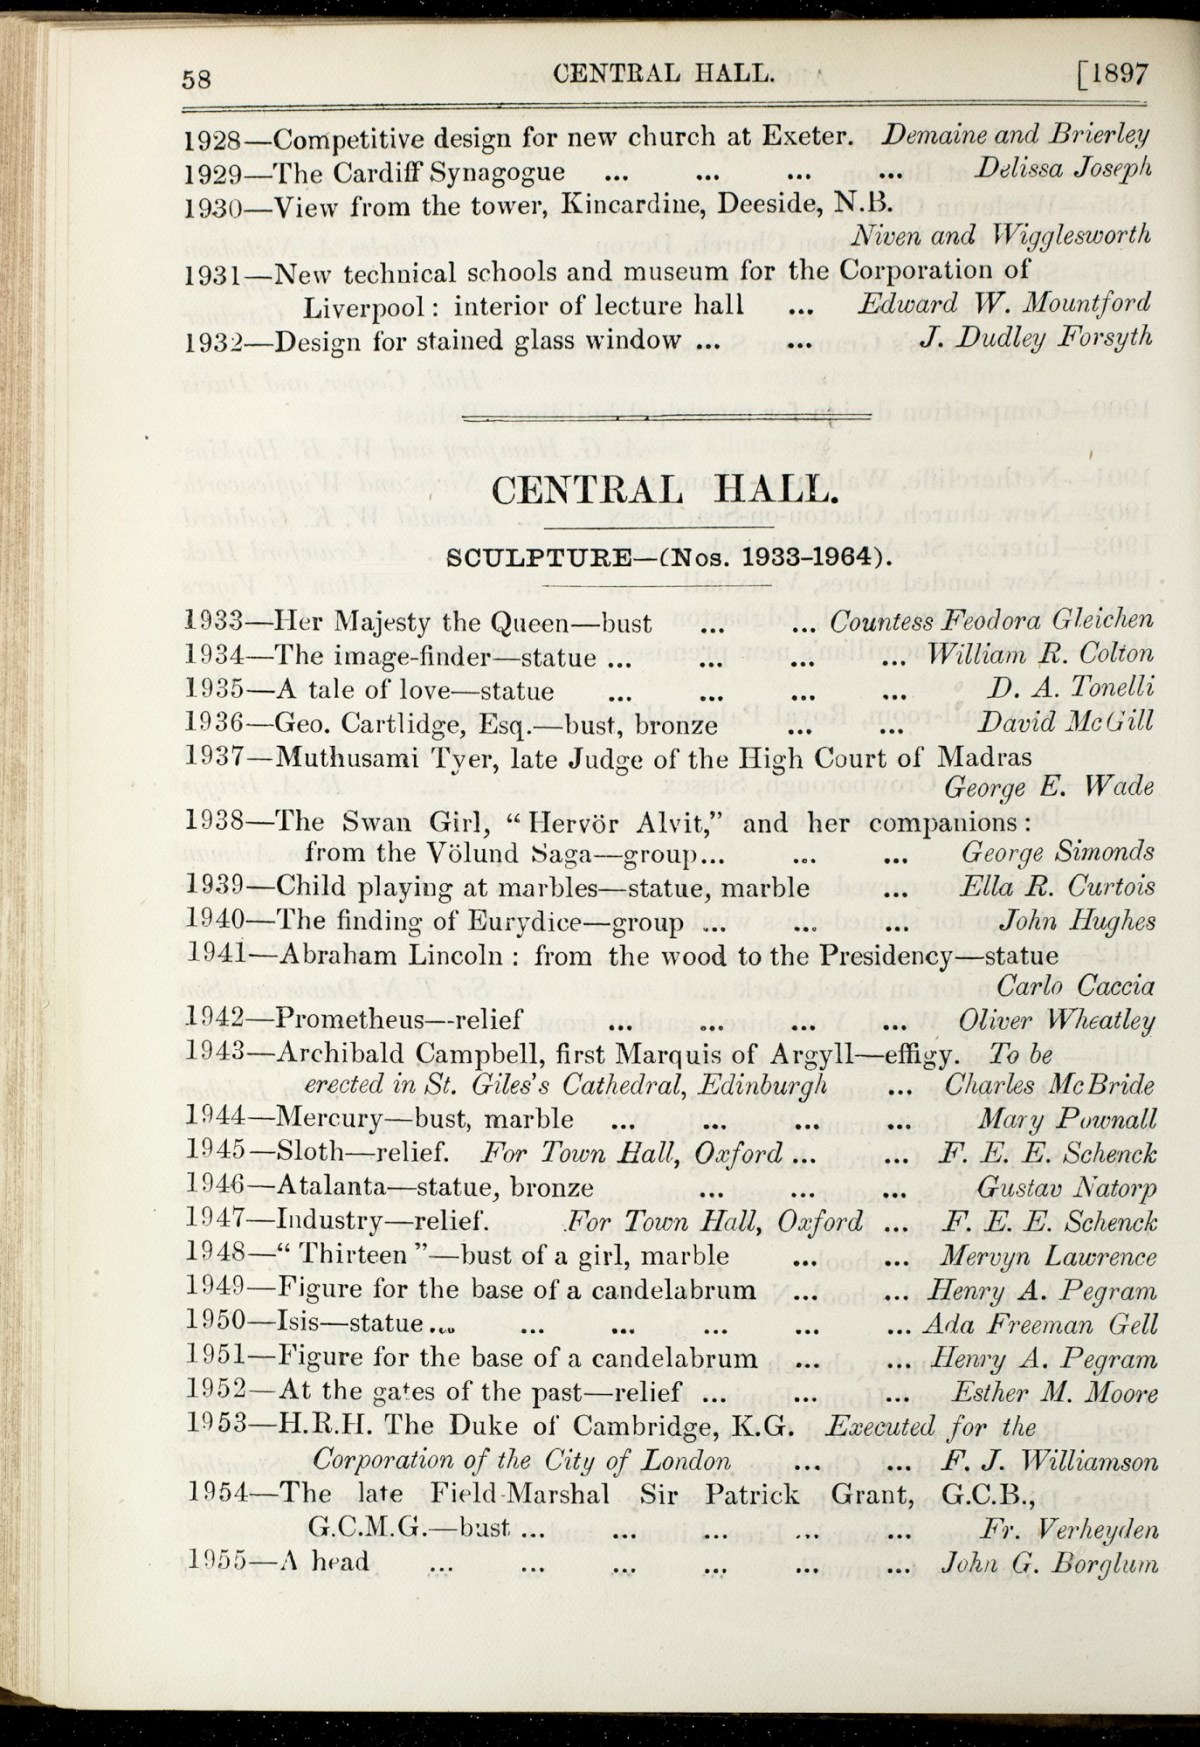 58 CENTRAL HALL. [1897
1928—Competitive design for new church at Exeter. Demaine and Brierley
1929—The Cardiff Synagogue ... ... ... ... Delissa Joseph
1930—View from the tower, Kincardine, Deeside, N.B.
Niven and Wigglesworth
1931—New technical schools and museum for the Corporation of
Liverpool: interior of lecture hall ... Edward W. Mountford
1932—Design for stained glass window ... ... J. Dudley Forsyth
CENTRAL HALL.
SCULPTURE—(Nos. 1933-1964).
1933—Her Majesty the Queen—bust ... ... Countess Feodora Gleichen
1934—The image-finder—statue ... ... ... ... William R. Colton
1935—A tale of love—statue ... ... ... ... D. A. Tonelli
1936—Geo. Cartlidge, Esq.—bust, bronze ... ... David McGill
1937—Muthusami Tyer, late Judge of the High Court of Madras
George E. Wade
1938—The Swan Girl, “Hervör Alvit,” and her companions:
from the Völund Saga—group... ... ... George Simonds
1939—Child playing at marbles—statue, marble ... Ella R. Curtois
1940—The finding of Eurydice—group ... ... ... John Hughes
1941—Abraham Lincoln: from the wood to the Presidency—statue
Carlo Caccia
1942—Prometheus—relief ... ... ... ... Oliver Wheatley
1943—Archibald Campbell, first Marquis of Argyll—effigy. To be
erected in St. Giles's Cathedral, Edinburgh ... Charles McBride
1944—Mercury—bust, marble ... ... ... ... Mary Pownall
1945—Sloth—relief. For Town Hall, Oxford ... ... F. E. E. Schenck
1946—Atalanta—statue, bronze ... ... ... Gustav Natorp
1947—Industry—relief. For Town Hall, Oxford ... F. E. E. Schenck
1948—“Thirteen”—bust of a girl, marble ... ... Mervyn Lawrence
1949—Figure for the base of a candelabrum ... ... Henry A. Pegram
1950—Isis—statue... ... ... ... ... ... Ada Freeman Gell
1951—Figure for the base of a candelabrum ... ... Henry A. Pegram
1952—At the gates of the past—relief ... ... ... Esther M. Moore
1953—H.R.H. The Duke of Cambridge, K.G. Executed for the
Corporation of the City of London ... ... F. J. Williamson
1954—The late Field-Marshal Sir Patrick Grant, G.C.B.,
G.C.M.G.—bust ... ... ... ... ... Fr. Verheyden
1955—A head ... ... ... ... ... ... John G. Borglum